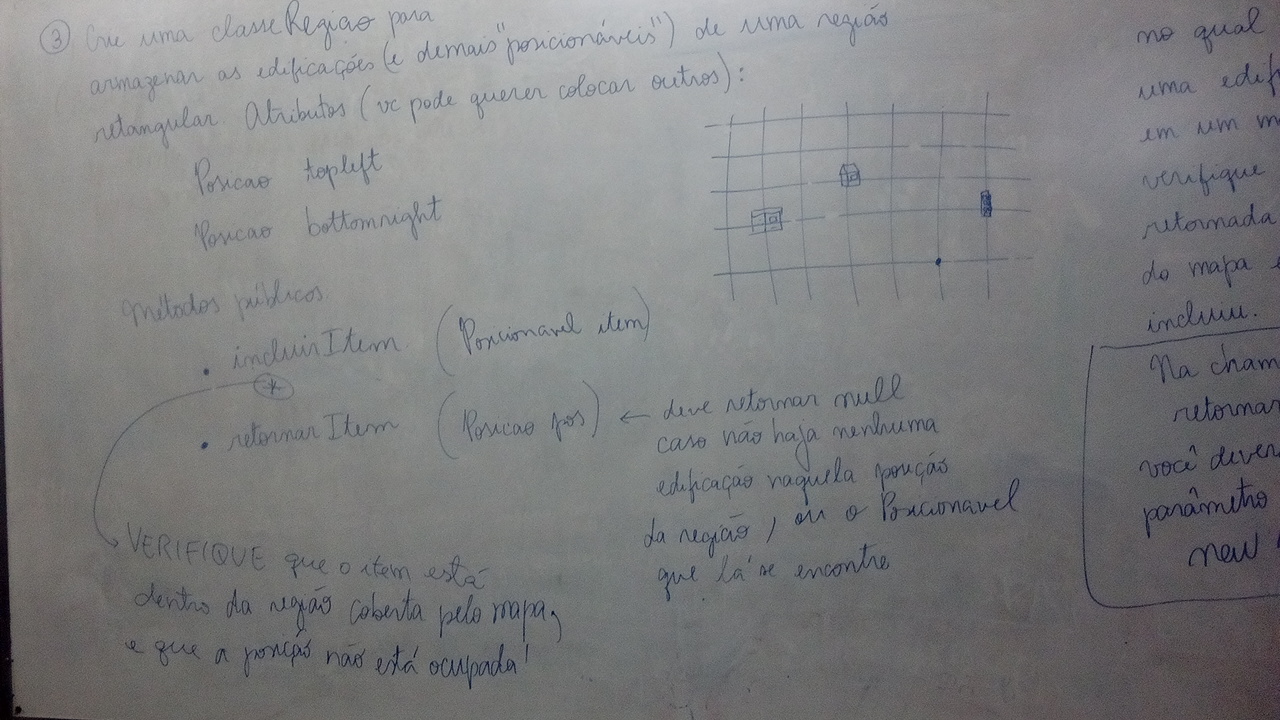 ③ Crie uma classe Região para
armazenar as edificações (e demais "posicionáveis") de uma região
retangular Atributos (vc pode querer colocar outros):
Posicao topleft
Posicao bottomright
Métodos públicos
• incluirItem (Posicionavel item)
*
• retornarItem (Posicao pos) ← deve retornar null
caso não haja nenhuma
edificação naquela posição
da região, ou o Posicionavel
que lá se encontre
VERIFIQUE que o item está
dentro da região coberta pelo mapa,
e que a posição não está ocupada!
no qual
uma edif
em um m
verifique
retornada
do mapa e
incluiu.
Na cham
retornar
você dever
parâmetro
new